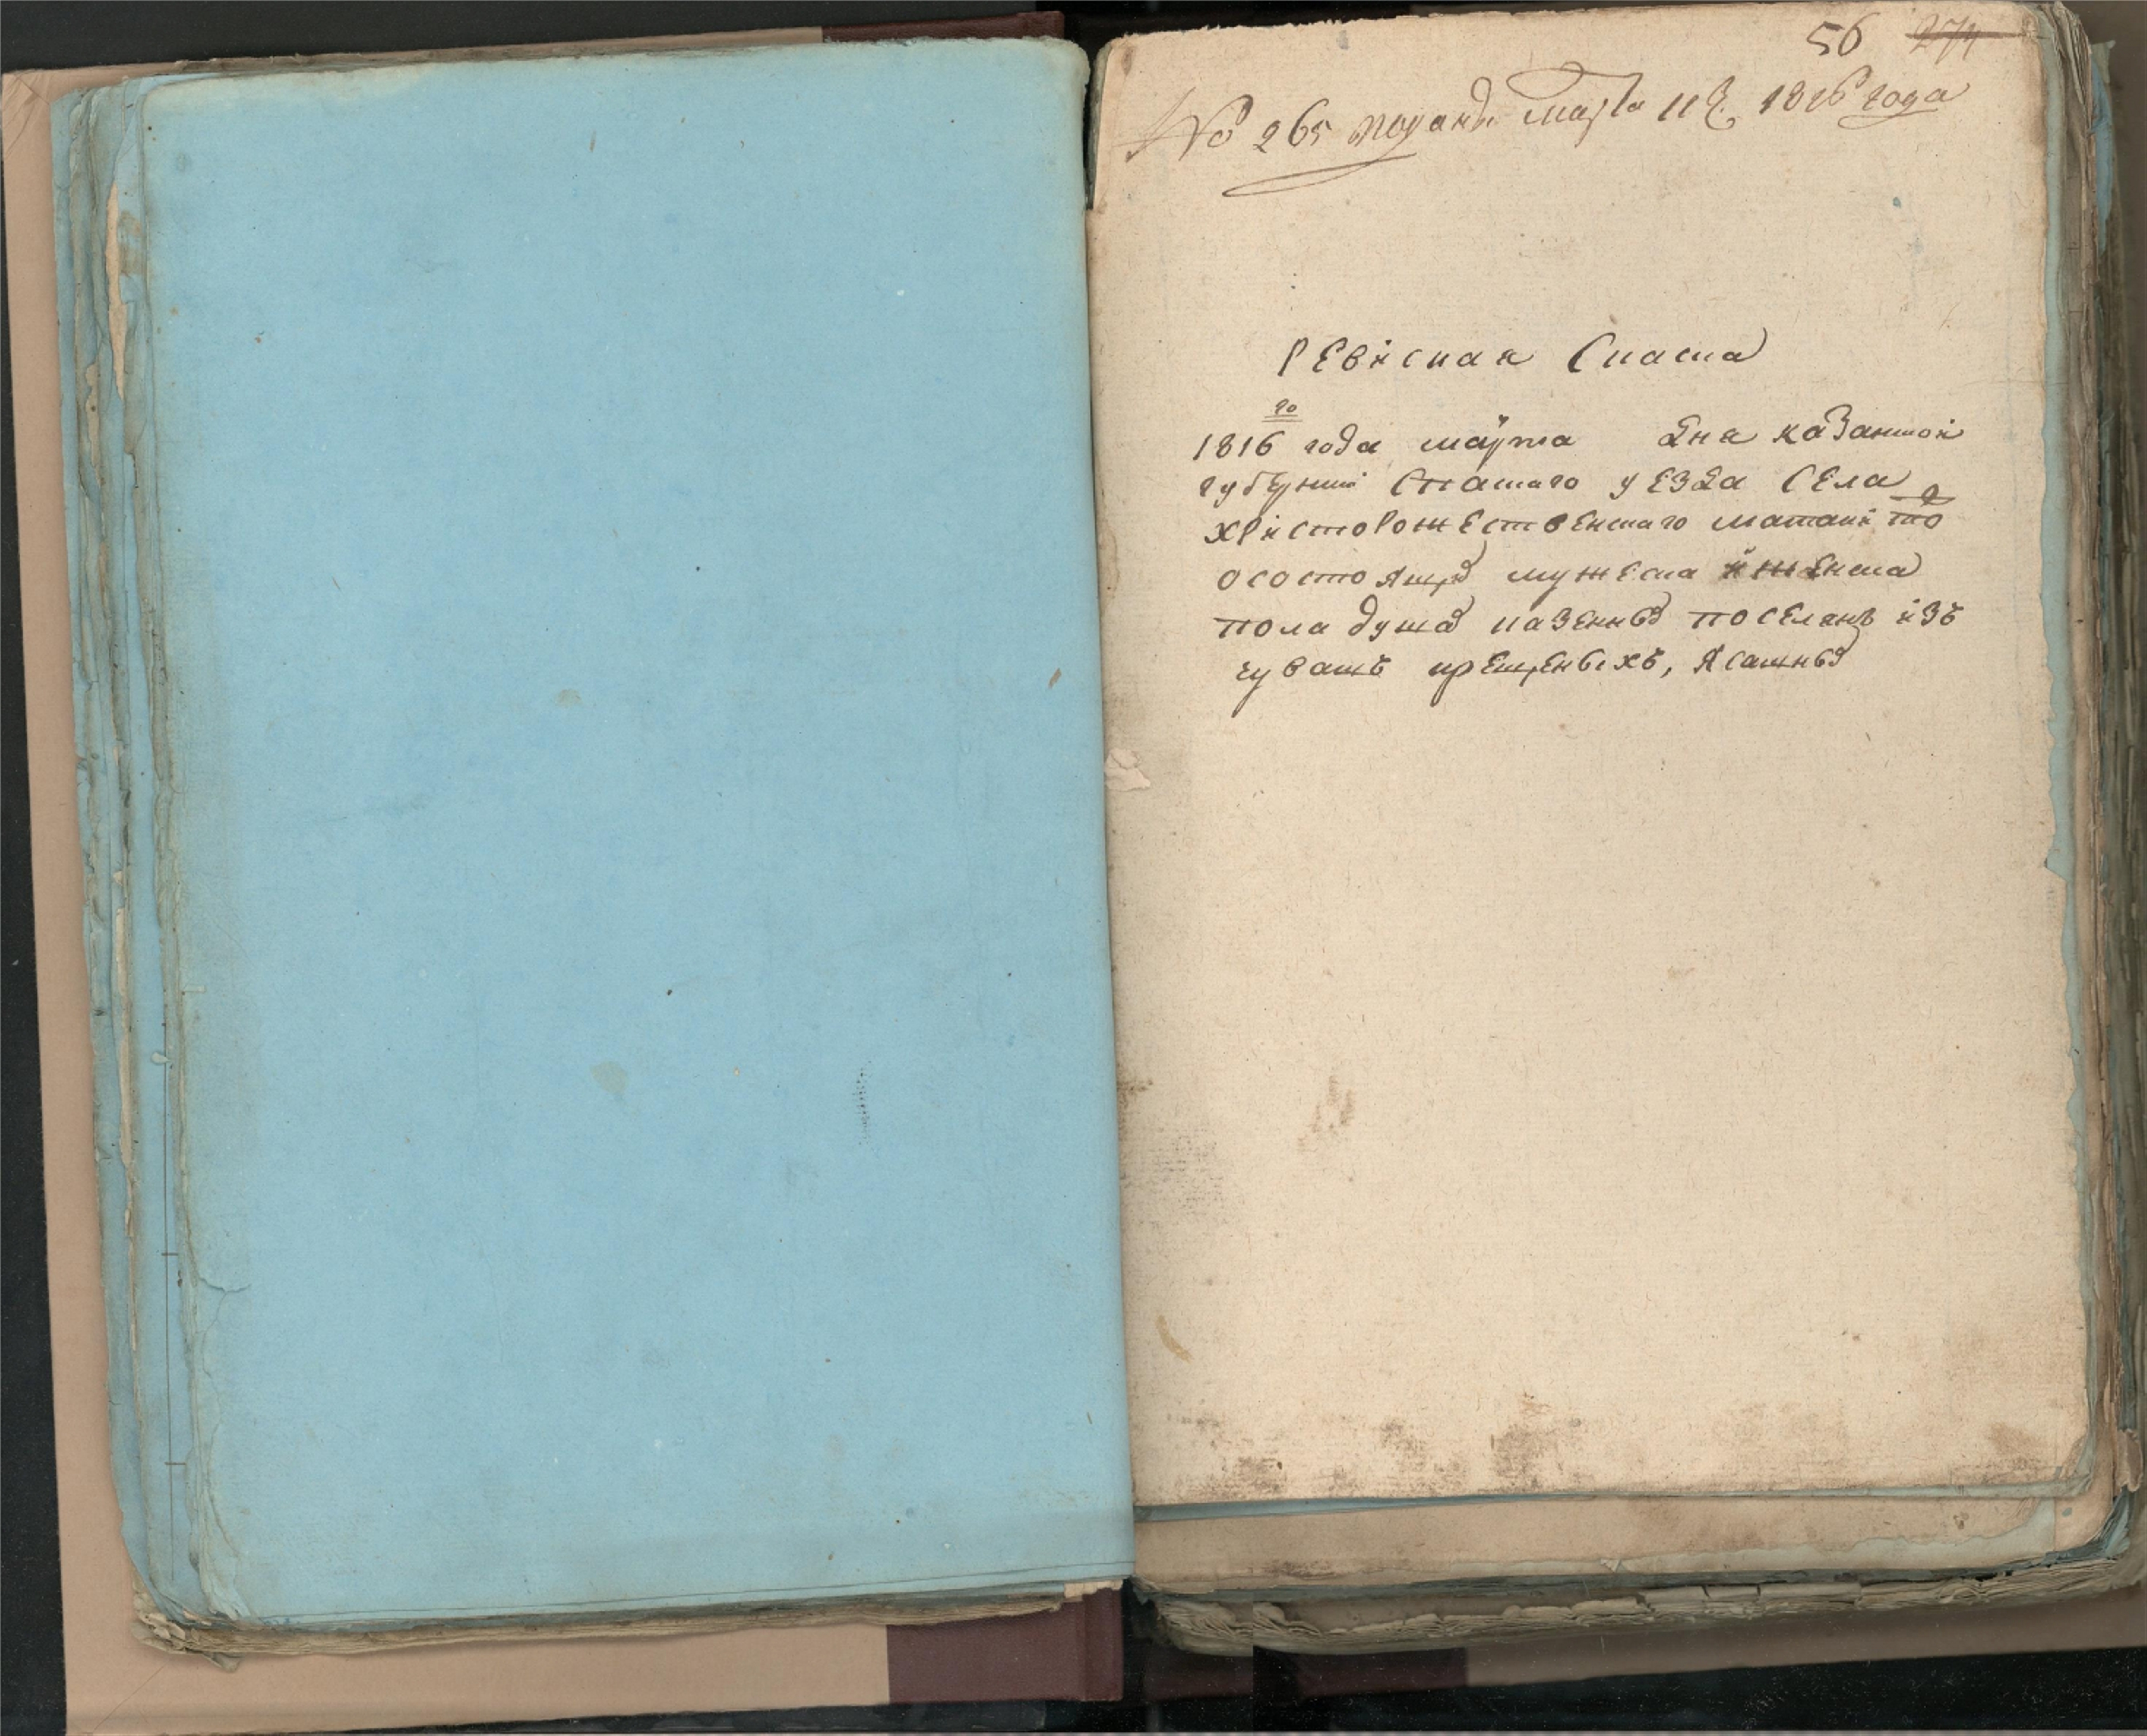 56 274
№ 265 подана марта 11 ч. 1816 года
Ревiсная Скаска
1816 го года марта дня казанской
губернiи Спаскаго уезда Села
христорожественскаго матаки то
о состоящих мужеска и женска
пола душах казенных поселян изъ
чувашъ крещеныхъ, ясашных